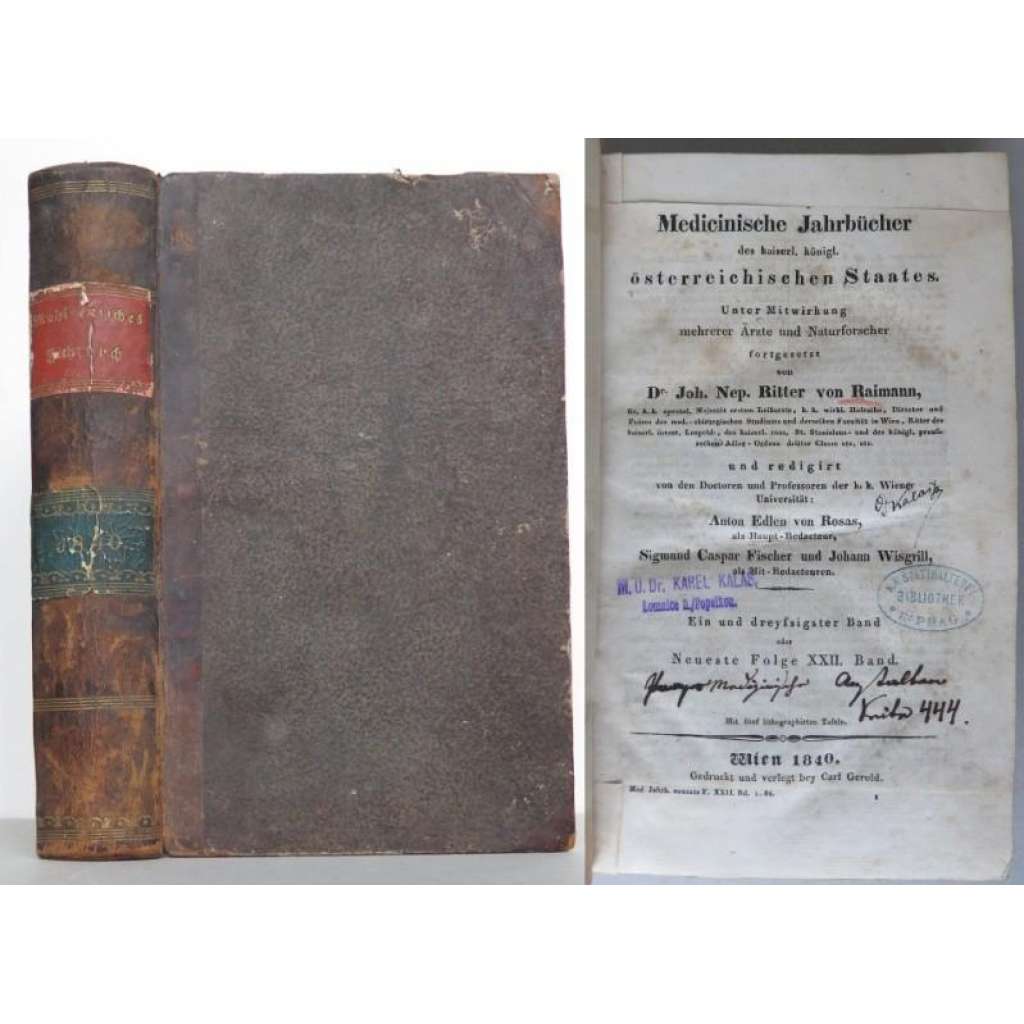 1840.
Medicinische Jahrbücher
des kaiserl. königl.
österreichischen Staates.
Unter Mitwirkung
mehrerer Ärzte und Naturforscher
fortgesetzt
von
Dr. Joh. Nep. Ritter von Raimann,
Sr. k. k. apostol. Majestät ersten Leibarzte, k. k. wirkl. Hofrathe, Director und
Präses des med.-chirurgischen Studiums und derselben Facultät in Wien, Ritter des
kaiserl. österr. Leopold-, des kaiserl. russ. St. Stanislaus- und des königl. preuss.
rothen Adler-Ordens dritter Classe etc. etc.
und redigirt
von den Doctoren und Professoren der k. k. Wiener
Universität:
Anton Edlen von Rosas,
als Haupt-Redacteur,
Sigmund Caspar Fischer und Johann Wisgrill,
als Mit-Redacteuren.
M. U. Dr. KAREL KALAŠ,
Lomnice n./Popelkou.
K. K. STATTHALTEREI
BIBLIOTHEK
PRAG
Ein und dreyfsigster Band
oder
Neueste Folge XXII. Band.
Medizinische Anstalten
444.
Mit fünf lithographirten Tafeln.
Wien 1840.
Gedruckt und verlegt bey Carl Gerold.
Med Jahrb. neueste F. XXII. Bd. 1. St.
1